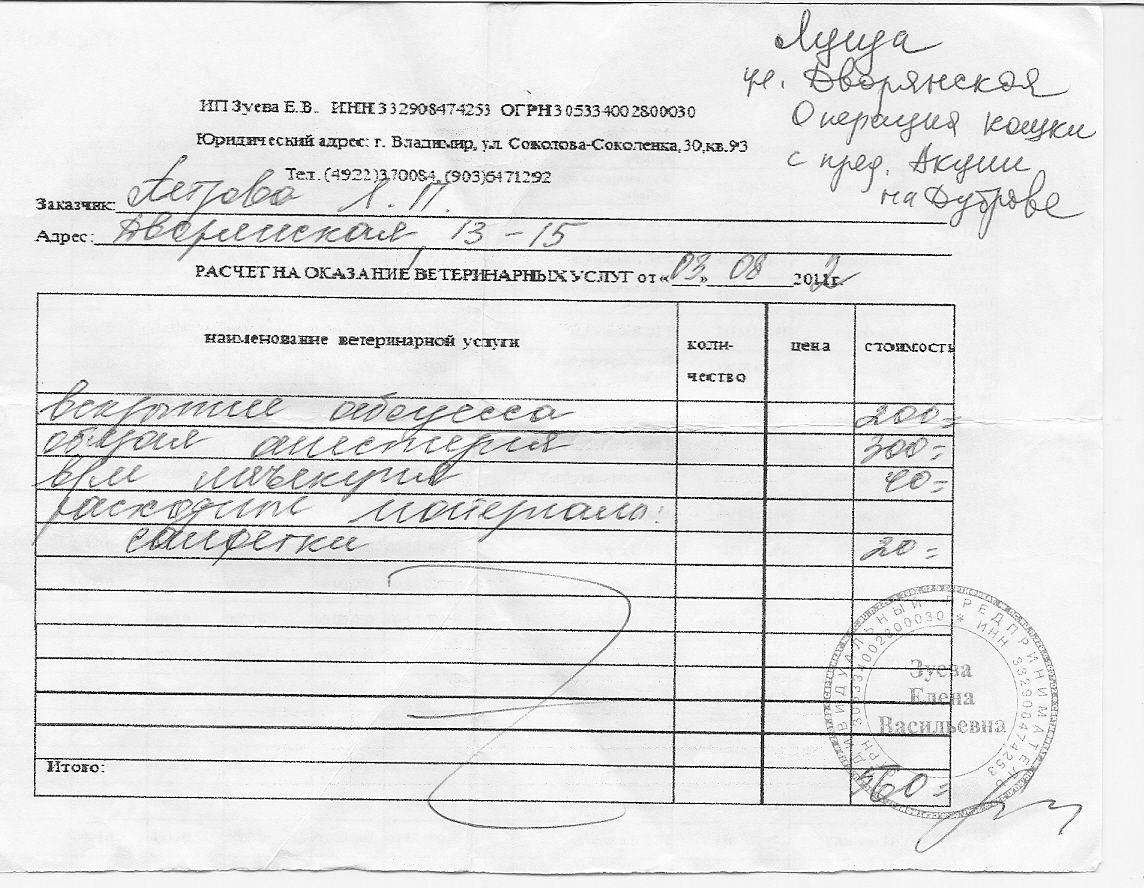 Луиза
ул. Дворянская
Операция кошки
с пред. Акции
на Дуброве
ИП Зуева Е.В. ИНН 332908474253 ОГРН 305334002800030
Юридический адрес: г. Владимир, ул. Соколова-Соколенка, 30, кв.93
Тел. (4922)370084, (903)6471292
Заказчик: Петрова Л. П.
Адрес: Дворянская, 13-15
РАСЧЕТ НА ОКАЗАНИЕ ВЕТЕРИНАРНЫХ УСЛУГ от «03» 08 2012г.
наименование ветеринарной услуги
коли-
чество
цена
стоимость
вскрытие абсцесса 200=
общая анестезия 300=
в/м инъекция 40=
расходн материалы:
салфетки 20=
Итого: 560=
ИНДИВИДУАЛЬНЫЙ ПРЕДПРИНИМАТЕЛЬ
ОГРН 305334002800030 * ИНН 332906474253
Зуева
Елена
Васильевна